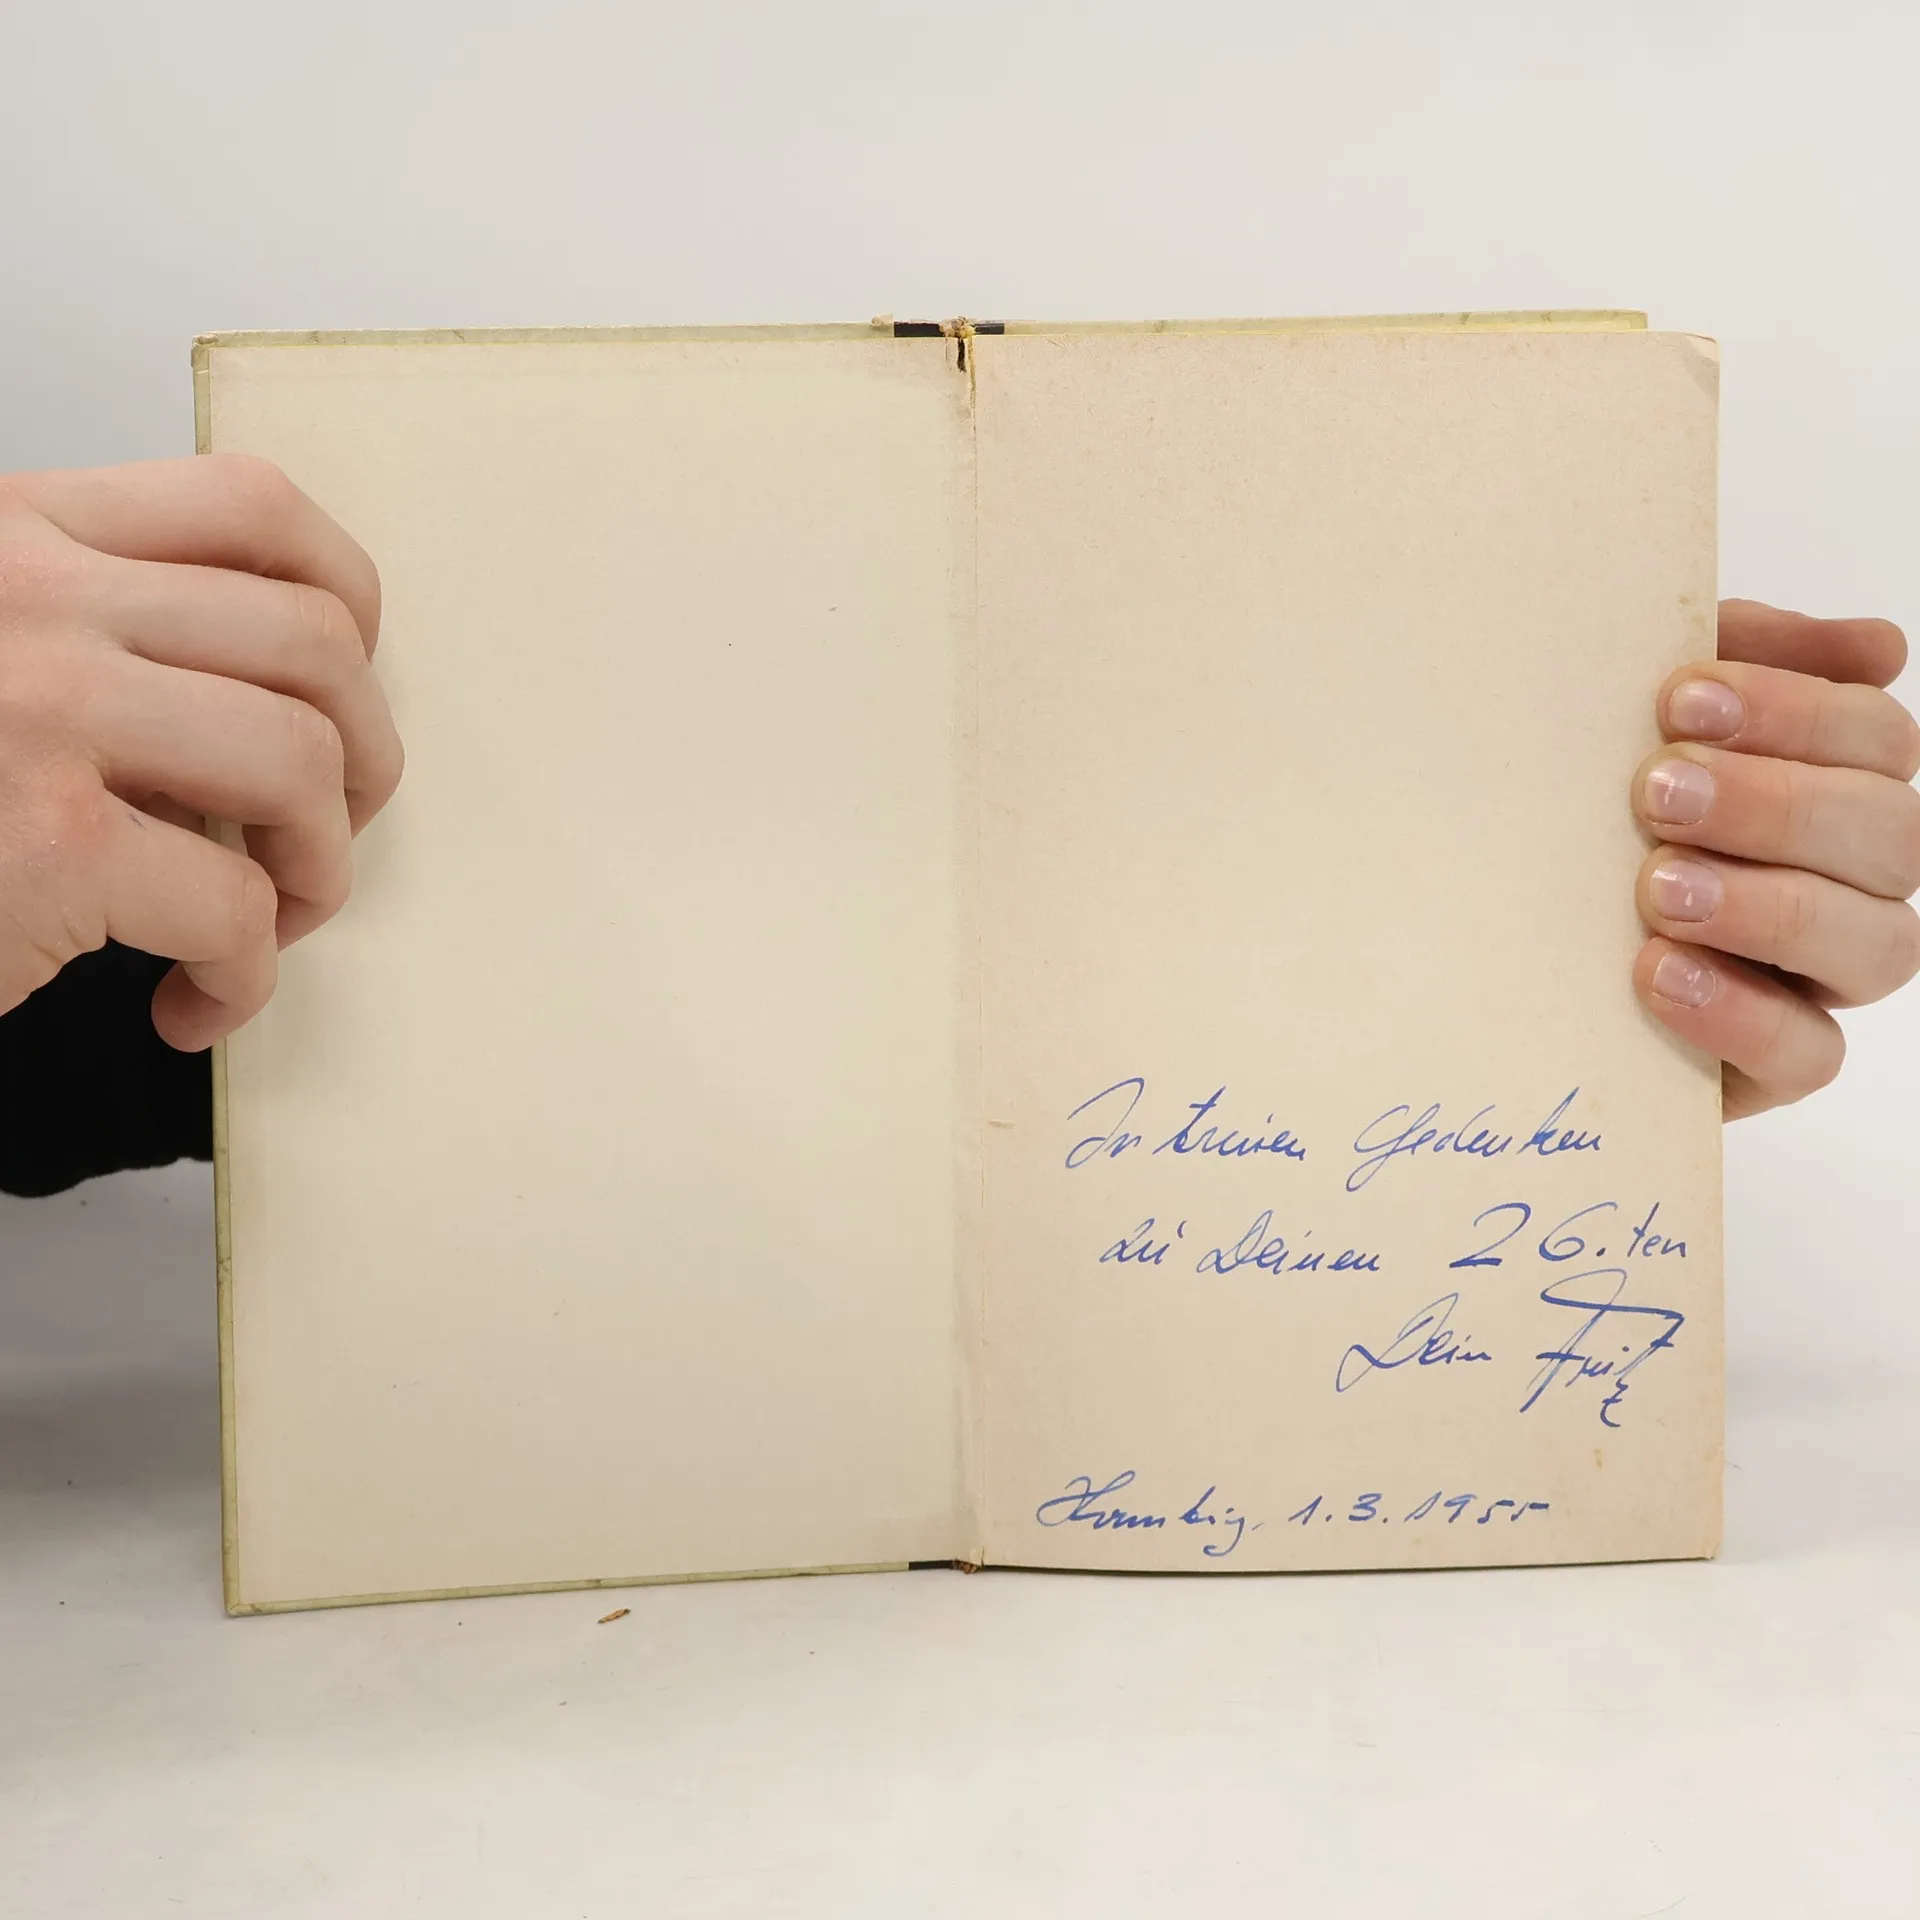 In treuen Gedenken
zu Deinen 26.ten
Dein Fritz
Hamburg, 1.3.1955